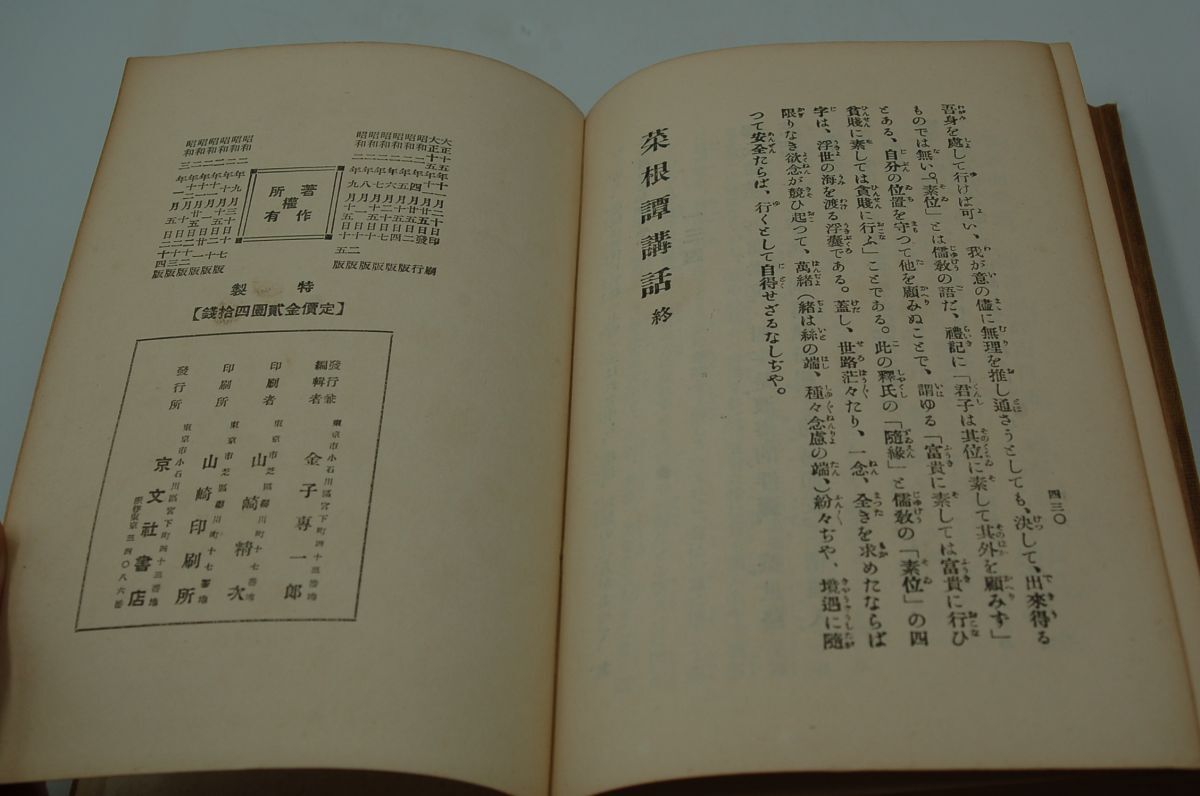 四三〇
吾身を處して行けば可い、我が意の儘に無理を推し通さうとしても、決して、出來得る
ものでは無い。「素位」とは儒教の語だ、禮記に「君子は其位に素して其外を顧みず」
とある、自分の位置を守つて他を顧みぬことで、謂ゆる「富貴に素しては富貴に行ひ
貧賤に素しては貧賤に行ふ」ことである。此の釋氏の「隨緣」と儒教の「素位」の四
字は、浮世の海を渡る浮囊である。蓋し、世路茫々たり、一念、全きを求めたならば
限りなき欲念が競ひ起つて、萬緒(緒は絲の端、種々念慮の端、)紛々ぢや、境遇に隨
つて安全たらば、行くとして自得せざるなしぢや。
菜根譚講話 終
大正十五年十一月二十日印刷
大正十五年十一月廿五日發行
昭和二年四月廿五日二版
昭和二年五月十五日四版
昭和二年六月二十日
昭和二年七月二十日
昭和二年八月十五日十版
昭和二年九月十五日十五版
著作
權
所有
特製
【定價金貳圓四拾錢】
發行兼編輯者
東京市小石川區宮下町四十三番地
金子專一郎
印刷者
東京市芝區
町十七番地
山崎精次
印刷所
東京市芝區
町十七番地
山崎印刷所
發行所
東京市小石川區宮下町四十三番地
京文社書店
振替東京三四〇八六番